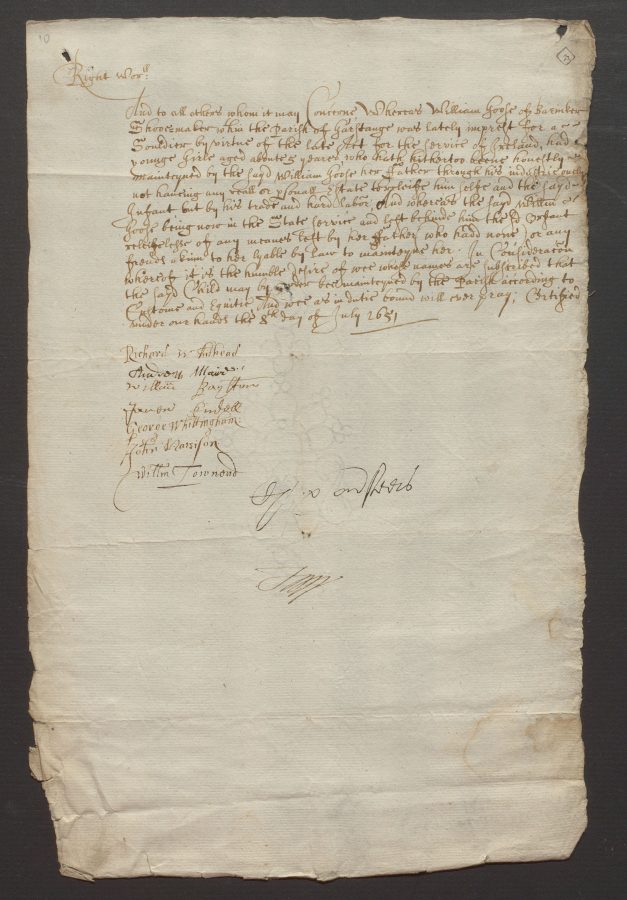 10
7
Right wor:ll
And to all others whom it may Concerne Whereas William Goose of Barniker
Shooemaker wthin the Parish of Garstange was lately imprest for a
Souldier by virtue of the late Act for the service of Ireland, had a
younge Girle aged aboute 5 yeares who hath hitherto beene honestly
mainteyned by the sayd William Goose her father through his industrie onely
not haveing any reall or psonall Estate to releife him selfe and the sayd
Infant but by his trade and hard labor And whereas the sayd Willm
Goose being now in the State service and left behinde him the sd Infant
releifelesse of any meanes left by her ffather who had none or any
freinds a kinn to her lyable by law to mainteyne her. In Consideracon
whereof it is the humble desire of wee whose names are subscribed that
the sayd Child may bee mainteyned by the Parish according to
Custome and Equitie And wee as in dutie bound will ever pray; Certified
under our hands the 8th day of July 1651
Richard
Andrew
William
George Whittingham
John Harrison
Willm Townend